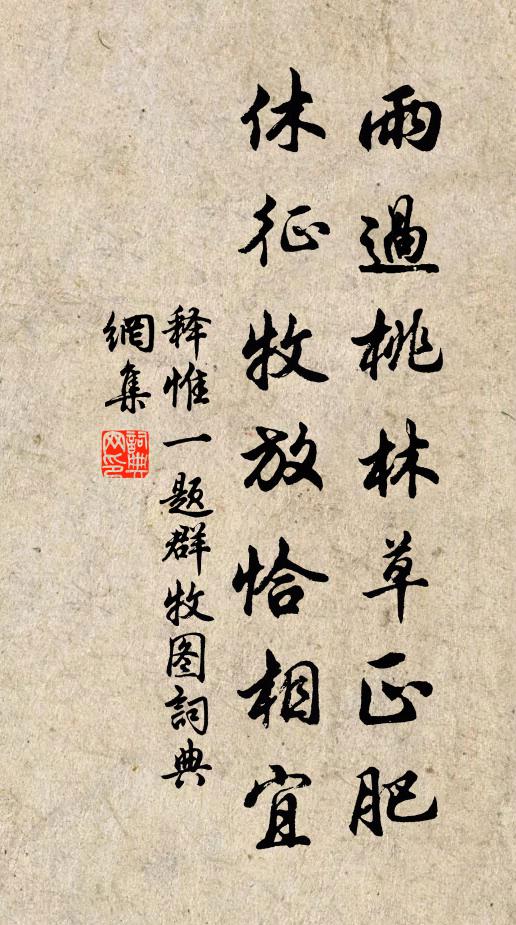 雨過桃林草正肥
休征牧放恰相宜
释惟一题群牧图詞典
網集
詞典网印